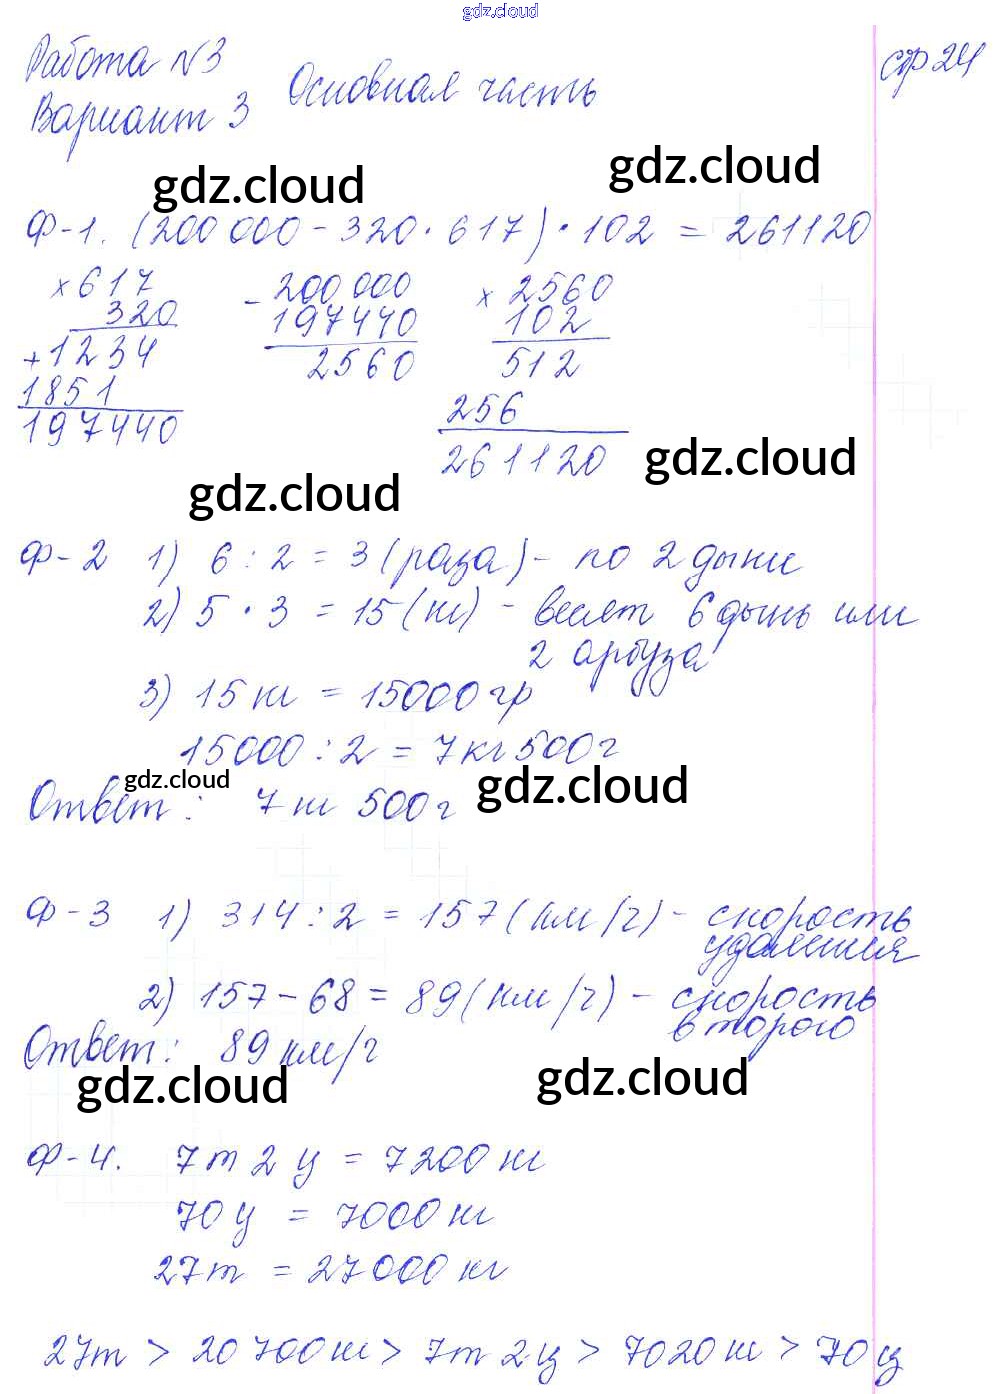 gdz.cloud
Работа №3
стр 24
Основная часть
Вариант 3
gdz.cloud
gdz.cloud
Ф-1. (200 000 - 320 · 617) · 102 = 261120
× 617
320
+ 1234
1851
197440
- 200 000
197440
2560
× 2560
102
512
256
261120
gdz.cloud
gdz.cloud
Ф-2 1) 6 : 2 = 3 (раза) - по 2 дыни
2) 5 · 3 = 15 (кг) - весят 6 дынь или
2 арбуза
3) 15 кг = 15000 гр
15000 : 2 = 7 кг 500 г
gdz.cloud
gdz.cloud
Ответ: 7 кг 500 г
Ф-3 1) 314 : 2 = 157 (км/ч) - скорость
удаления
2) 157 - 68 = 89 (км/ч) - скорость
второго
Ответ: 89 км/ч
gdz.cloud
gdz.cloud
Ф-4. 7т 2ц = 7200 кг
70ц = 7000 кг
27т = 27000 кг
27т > 20700 кг > 7т 2ц > 7020 кг > 70ц